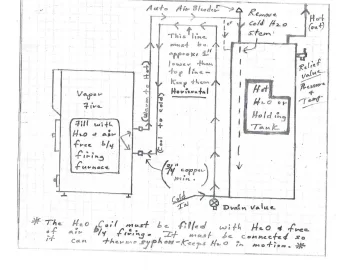 Auto Air Bleeder
Remove
cold H2O
stem.
Hot
(out)
This line
must be
approx 5"
lower than
top line -
Keep them
Horizontal
Relief
valve
Pressure
+
Temp
Vapor
Fire
Fill with
H2O & air
free b/4
firing
furnace
(Warm to Hot)
(Cool to cold)
Hot
H2O or
Holding
Tank
3/4" copper
min.
Cold
IN
Drain valve
* The H2O Coil must be filled with H2O & free
of air b/4 firing. It must be connected so
it can thermo-syphon - Keeps H2O in motion. *